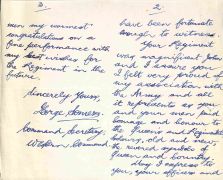 3.
men my warmest
congratulations on a
fine performance with
my best wishes for
the Regiment in the
future.
Sincerely Yours,
George Somers.
Command Secretary,
Western Command.
2.
have been fortunate
enough to witness.
Your Regiment
was magnificent
and I assure you
I felt very proud of
my association with
the Army and all
it represents as you
and your men paid
homage and honour to
the Queens and Regimental
Colours, old and new,
the sacred symbols of
Queen and Country.
May I express to
you, your officers and